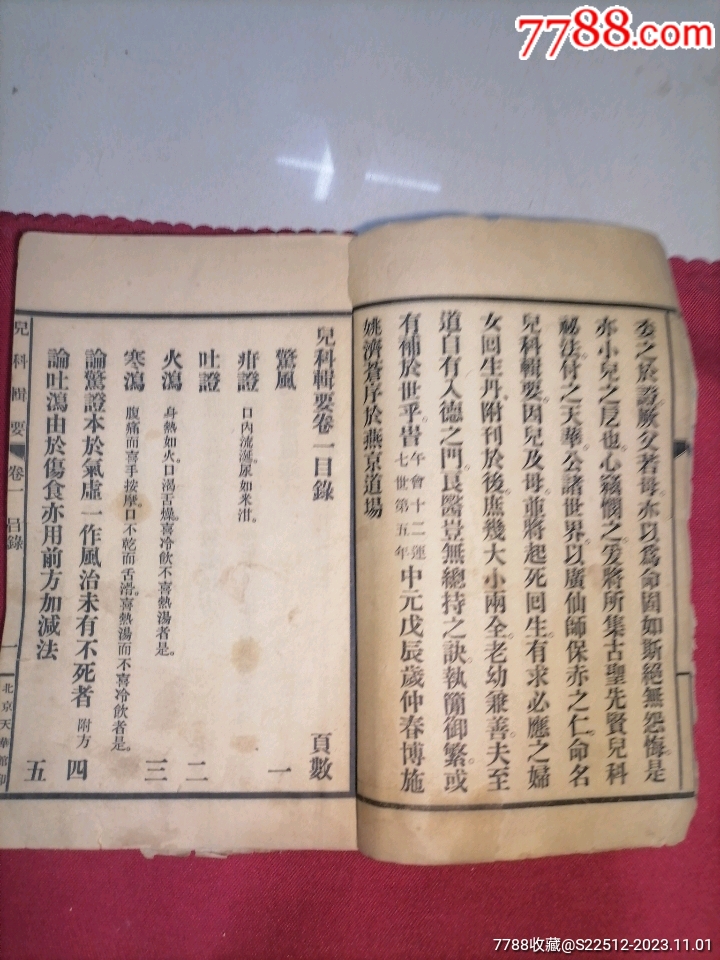 7788.com
委之於證。厥父若母。亦以爲命固如斯。絕無怨悔。是
亦小兒之戹也。心竊憫之。爰將所集古聖先賢兒科
祕法。付之天華。公諸世界。以廣仙師保赤之仁。命名
兒科輯要。因兒及母。並將起死回生。有求必應之婦
女回生丹。附刊於後。庶幾大小兩全。老幼兼善。夫至
道自有入德之門。良醫豈無總持之訣。執簡御繁。或
有補於世乎。旹午會十二運七世第五年中元戊辰歲仲春博施
姚濟蒼序於燕京道場
兒科輯要卷一目錄 頁數
驚風 一
疳證 口內流涎。尿如米泔。
吐證 二
火瀉 身熱如火。口渴舌燥。喜冷飲不喜熱湯者是。
寒瀉 腹痛而喜手按摩。口不乾而舌滑。喜熱湯而不喜冷飲者是。 三
論驚證本於氣虛一作風治未有不死者 附方 四
論吐瀉由於傷食亦用前方加減法 五
兒科輯要 卷一 目錄 一 北京天華館印
7788收藏@S22512-2023.11.01